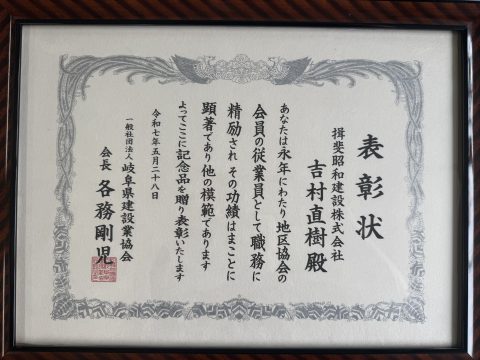 表彰状
揖斐昭和建設株式会社
吉村直樹殿
あなたは永年にわたり地区協会の
会員の従業員として職務に
精励され その功績はまことに
顕著であり他の模範であります
よってここに記念品を贈り表彰いたします
令和七年五月二十八日
一般社団法人 岐阜県建設業協会
会長 各務剛児